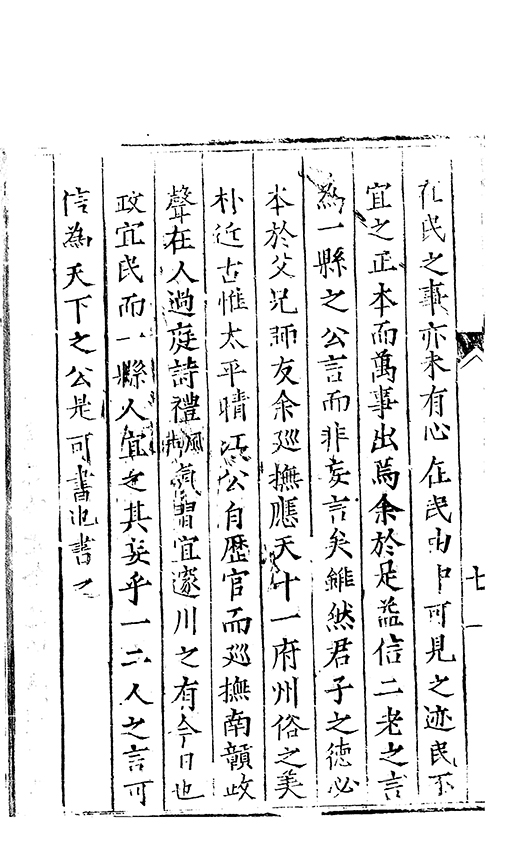 在民之事亦未有心在民由中可見之迹民不
宜之正本而萬事出焉余於是益信二老之言
為一縣之公言而非妄言矣雖然君子之徳必
本於父兄師友余廵撫應天十一府州俗之美
朴近古惟太平晴江公自歷官而廵撫南贛政
聲在人過庭詩禮風氣習宜遂川之有今日也
政冝民而一縣人宜之其妄乎一二人之言可
信為天下之公是可書也書之
七一